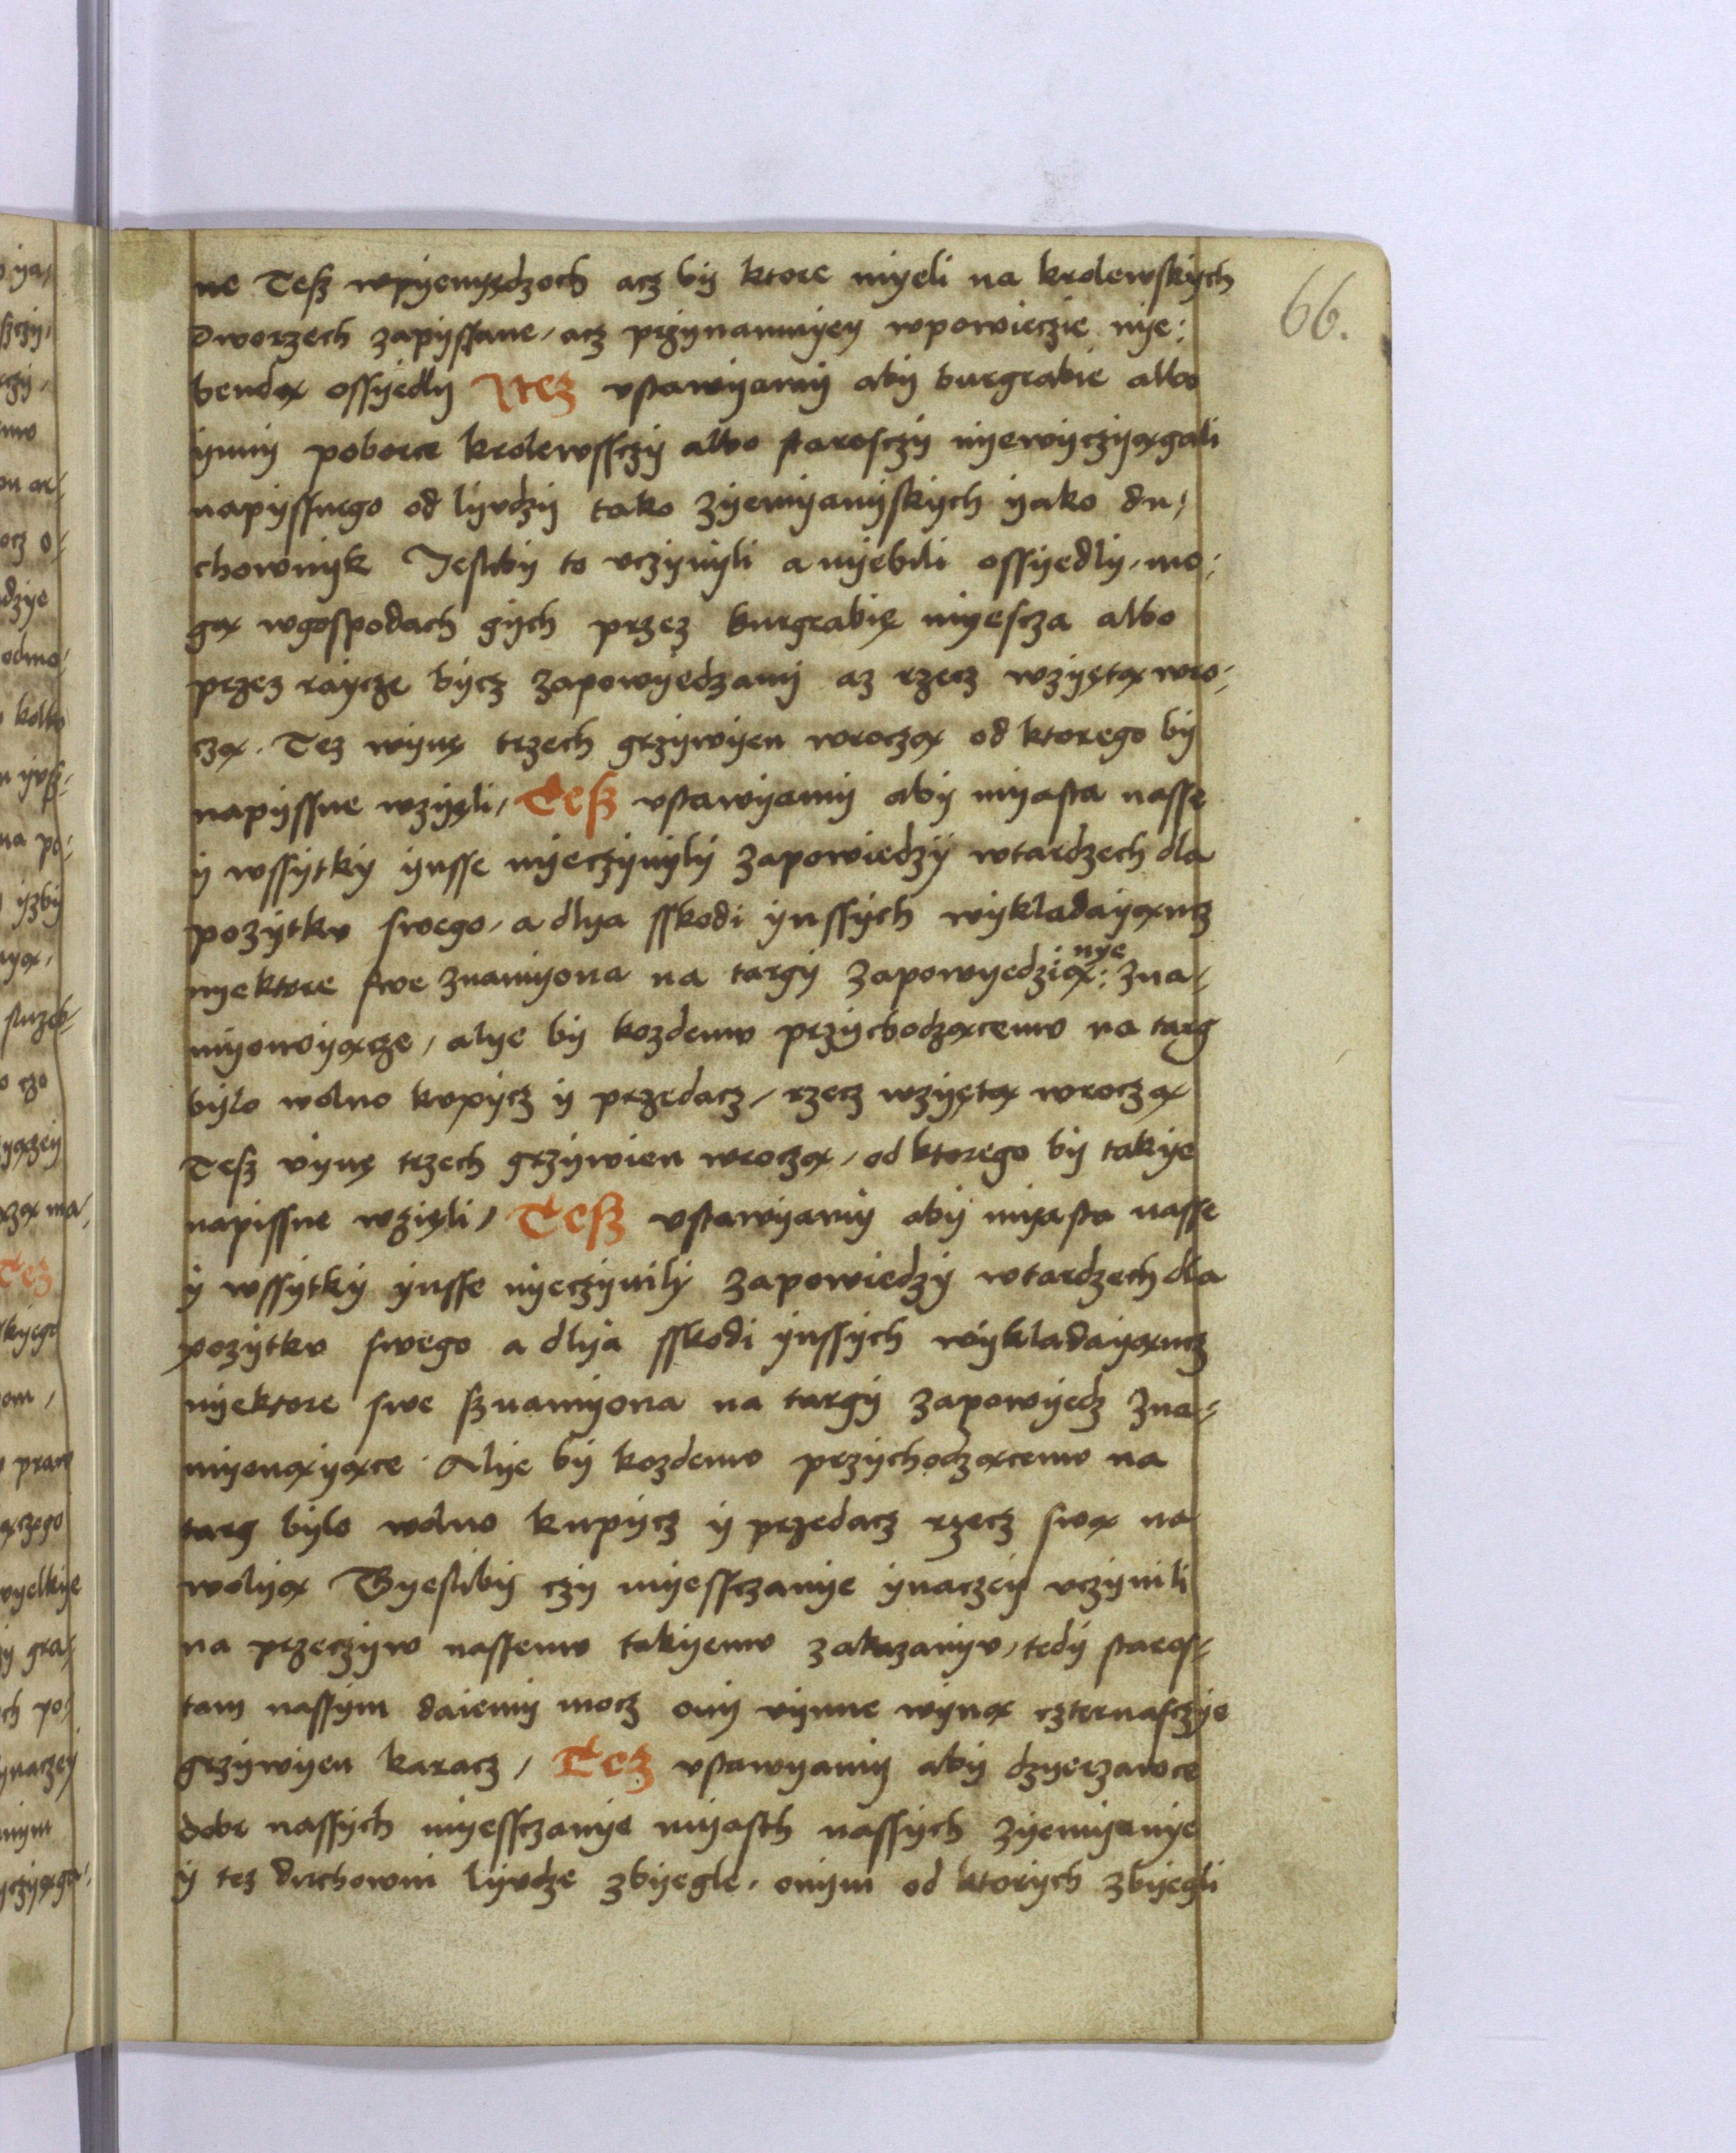 66.
ne Teſz wpyenyędzoch acz by ktore myeli na krolewskych
Dworzech zapyſſane, acz przynamnyey wpowieczie nye:
bendą oſſyedly Itez vſtawyamy aby burgrabie albo
ynny poborce krolewſſczy albo ſtaroſczy nyewyczyągali
napyſſnego od lyvdzy tako zyemyanyſkych yako du:
chownyk Jeſtlyby to vczynyli a nyebili oſſyedly, mo:
gą wgoſpodach gych przez burgrabię myeſcza albo
przez raycze bycz zapowyedzany az rzecz wzyętą wro:
czą. Tez wynę trzech grzywyen wroczą od ktorego by
napyſſne wzyęli, Teſz vſtawyamy aby myaſta naſſe
y wſſytky ynſſe nyeczynyly zapowiedzy wtardzech dla
pozytkv ſwego, a dlya ſſkodi ynſſych wykladayąncz
nyektore ſwe znamyona na targy zapowyedzią: nye zna:
myonvyącze, alye by kozdemv przychodzącemv na targ
bylo wolno kvpycz y przedacz, rzecz wzyętą wroczą
Teſz vynę trzech grzywien wroczą, od ktorego by takye
napiſſne wzięli, Teſz vſtawyamy aby myaſta naſſe
y wſſytky ynſſe nyeczynily zapowiedzy wtardzech dla
pozytkv ſwego a dlya ſſkodi ynſſych wykladayąncz
nyektore ſwe ſznamyona na targy zapowyedz zna:
myonąyące. Alye by kozdemv przychodzącemv na
targ bylo wolno kupycz y przedacz rzecz ſwą na
wolyą Gyeſtliby czy myeſſczanye ynaczey vczynili
na przeczyw naſſemv takyemv zakazanyv, tedy ſtaroſ:
tam naſſym daiemy mocz ony vynne wyną czternaſczye
grzywyen karacz, Tez vſtawyamy aby dzyerzawce
dobr naſſych myeſſczanye myaſth naſſych zyemyanye
y tez duchowni lyvdze zbyegle, onym od ktorych zbyegli